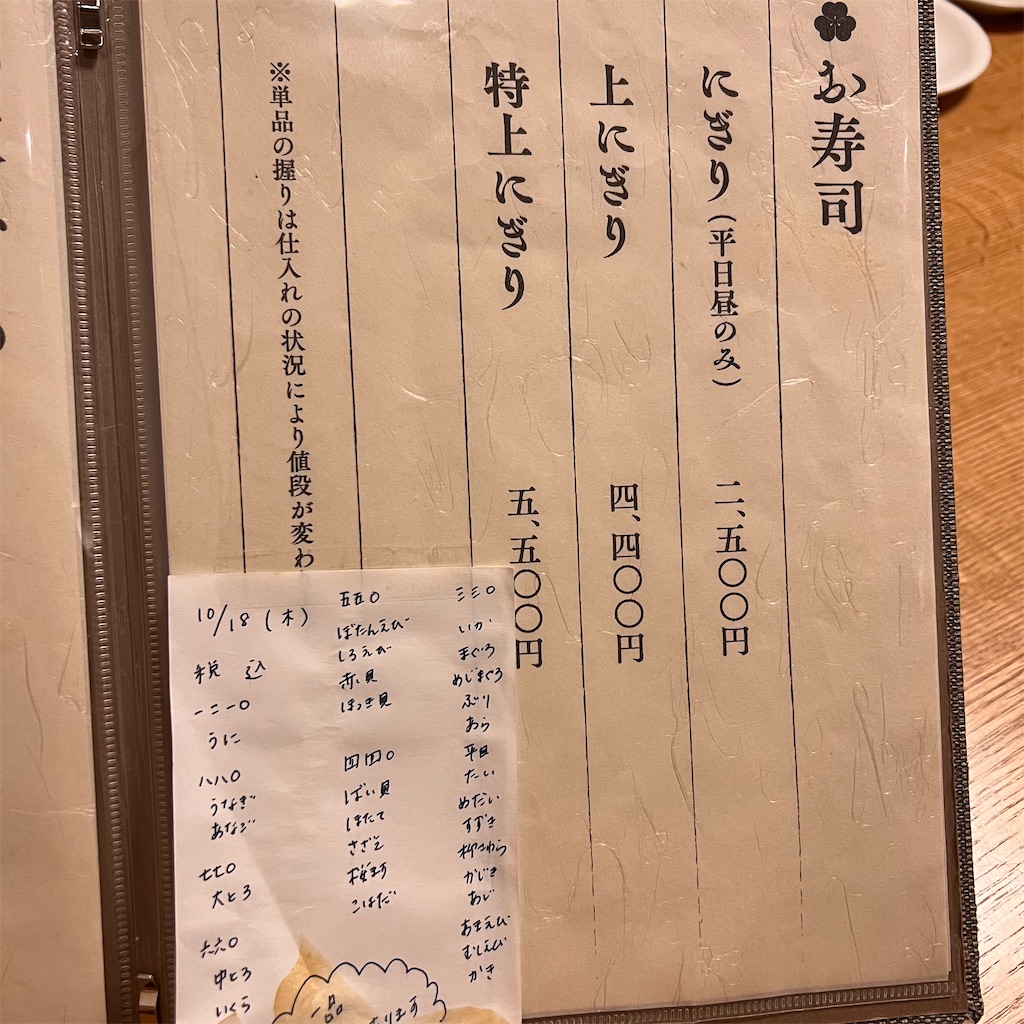 お寿司
にぎり(平日昼のみ) 二、五〇〇円
上にぎり 四、四〇〇円
特上にぎり 五、五〇〇円
※単品の握りは仕入れの状況により値段が変わ
三三〇
いか
まぐろ
めじまぐろ
ぶり
あら
平目
たい
めだい
すずき
柳さわら
かじき
あじ
あまえび
むしえび
かき
五五〇
ぼたんえび
しろえび
赤貝
ほっき貝
四四〇
ばい貝
ほたて
さざえ
桜ます
こはだ
10/18(木)
税込
一二一〇
うに
八八〇
うなぎ
あなご
七七〇
大とろ
六六〇
中とろ
いくら
一品
ります